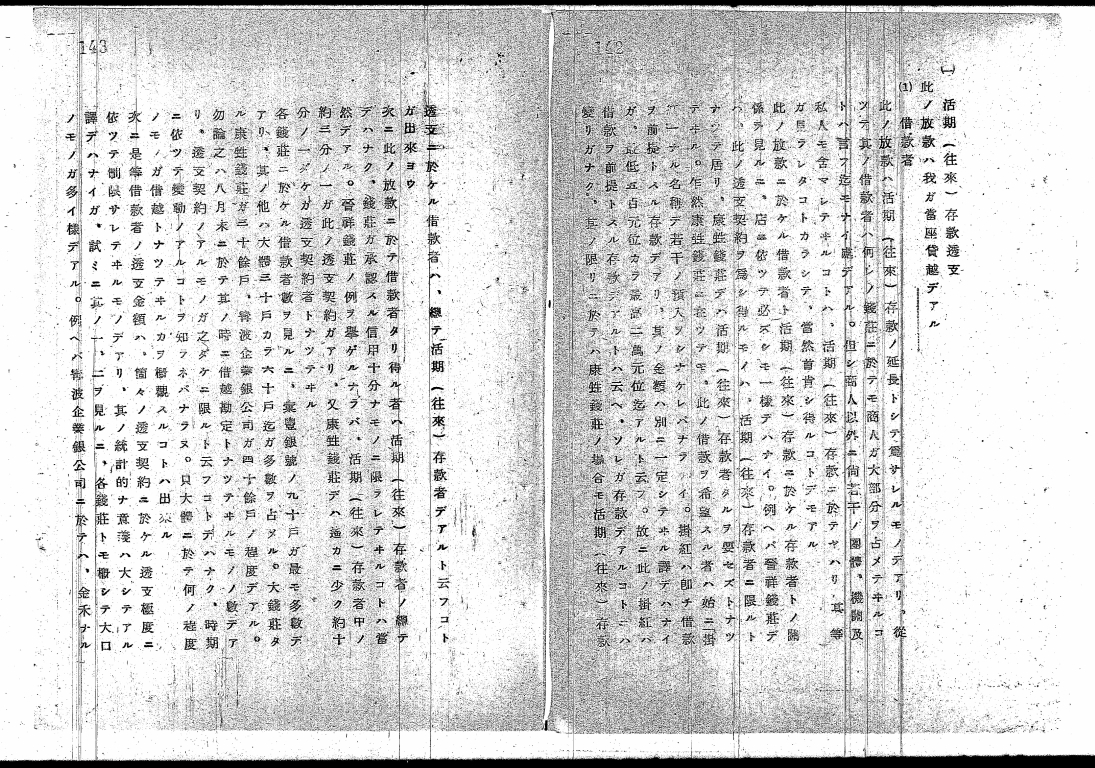 142
(一) 活期(往來)存款透支
此ノ放款ハ我ガ當座貸越デアル
(1) 借款者
此ノ放款ハ活期(往來)存款ノ延長トシテ爲サレルモノデアリ。從
ツテ其ノ借款者ハ何レノ錢莊ニ於テモ商人ガ大部分ヲ占メテヰルコ
トハ言フ迄モナイ處デアル。但シ商人以外ニ尚若干ノ團體、機關及
私人モ含マレテヰルコトハ、活期(往來)存款ニ於テヤハリ、其等
ガ見ラレタコトカラシテ、當然首肯シ得ルコトデモアル
此ノ放款ニ於ケル借款者ト活期(往來)存款ニ於ケル存款者トノ關
係ヲ見ルニ、店ニ依ツテ必ズシモ一樣デハナイ。例ヘバ晉祥錢莊デ
ハ、此ノ透支契約ヲ爲シ得ルモノハ、活期(往來)存款者ニ限ルト
ナシテ居リ、康牲錢莊デハ活期(往來)存款者タルヲ要セズトナツ
テヰル。乍然康牲錢莊ニ在ツテモ、此ノ借款ヲ希望スル者ハ始ニ掛
一テル名稱デ若干ノ預入ヲシナケレバナラ イ。掛紅ハ卽チ借款
ヲ前提トスル存款デアリ、其ノ金額ハ別ニ一定シテヰル譯デハナイ
ガ、最低五百元位カラ最高二萬元位迄アルト云フ。故ニ此ノ掛紅ハ
借款ヲ前提トスル存款デアルトハ云ヘ、ソレガ存款デアルコトニハ
變リガナク、此ノ限リニ於テハ康牲錢莊ノ場合モ活期(往來)存款
143
透支ニ於ケル借款者ハ、總テ活期(往來)存款者デアルト云フコト
ガ出來ヨウ
次ニ此ノ放款ニ於テ借款者タリ得ル者ハ活期(往來)存款者ノ總テ
デハナク、錢莊ガ承認スル信用十分ナモノニ限ラレテヰルコトハ當
然デアル。晉祥錢莊ノ例ヲ擧ゲルナラバ、活期(往來)存款者中ノ
約三分ノ一ガ此ノ透支契約ガアリ、又康牲錢莊デハ遙カニ少ク約十
分ノ一ダケガ透支契約者トナツテヰル
各錢莊ニ於ケル借款者數ヲ見ルニ、豐銀號ノ九十戶ガ最モ多數デ
アリ、其ノ他ハ大體三十戶カラ六十戶迄ガ多數ヲ占メル。大錢莊タ
ル康牲錢莊ガ二十餘戶、寧波企業銀公司ガ四十餘戶ノ程度デアル。
勿論之ハ八月末ニ於テ其ノ時ニ借越勘定トナツテヰルモノノ數デア
リ、透支契約ノアルモノガ之ダケニ限ルト云フコトデハナク、時期
ニ依ツテ變動ノアルコトヲ知ラネバナラヌ。只大體ニ於テ何ノ程度
ノモノガ借越トナツテヰルカヲ概觀スルコトハ出來ル
次ニ是等借款者ノ透支金額ハ、箇々ノ透支契約ニ於ケル透支極度ニ
依ツテ制限サレテヰルモノデアリ、其ノ統計的ナ意義ハ大シテアル
譯デハナイガ、試ミニ其ノ一、二ヲ見ルニ、各錢莊トモ概シテ大口
ノモノガ多イ樣デアル。例ヘバ寧波企業銀公司ニ於テハ、金禾ナル